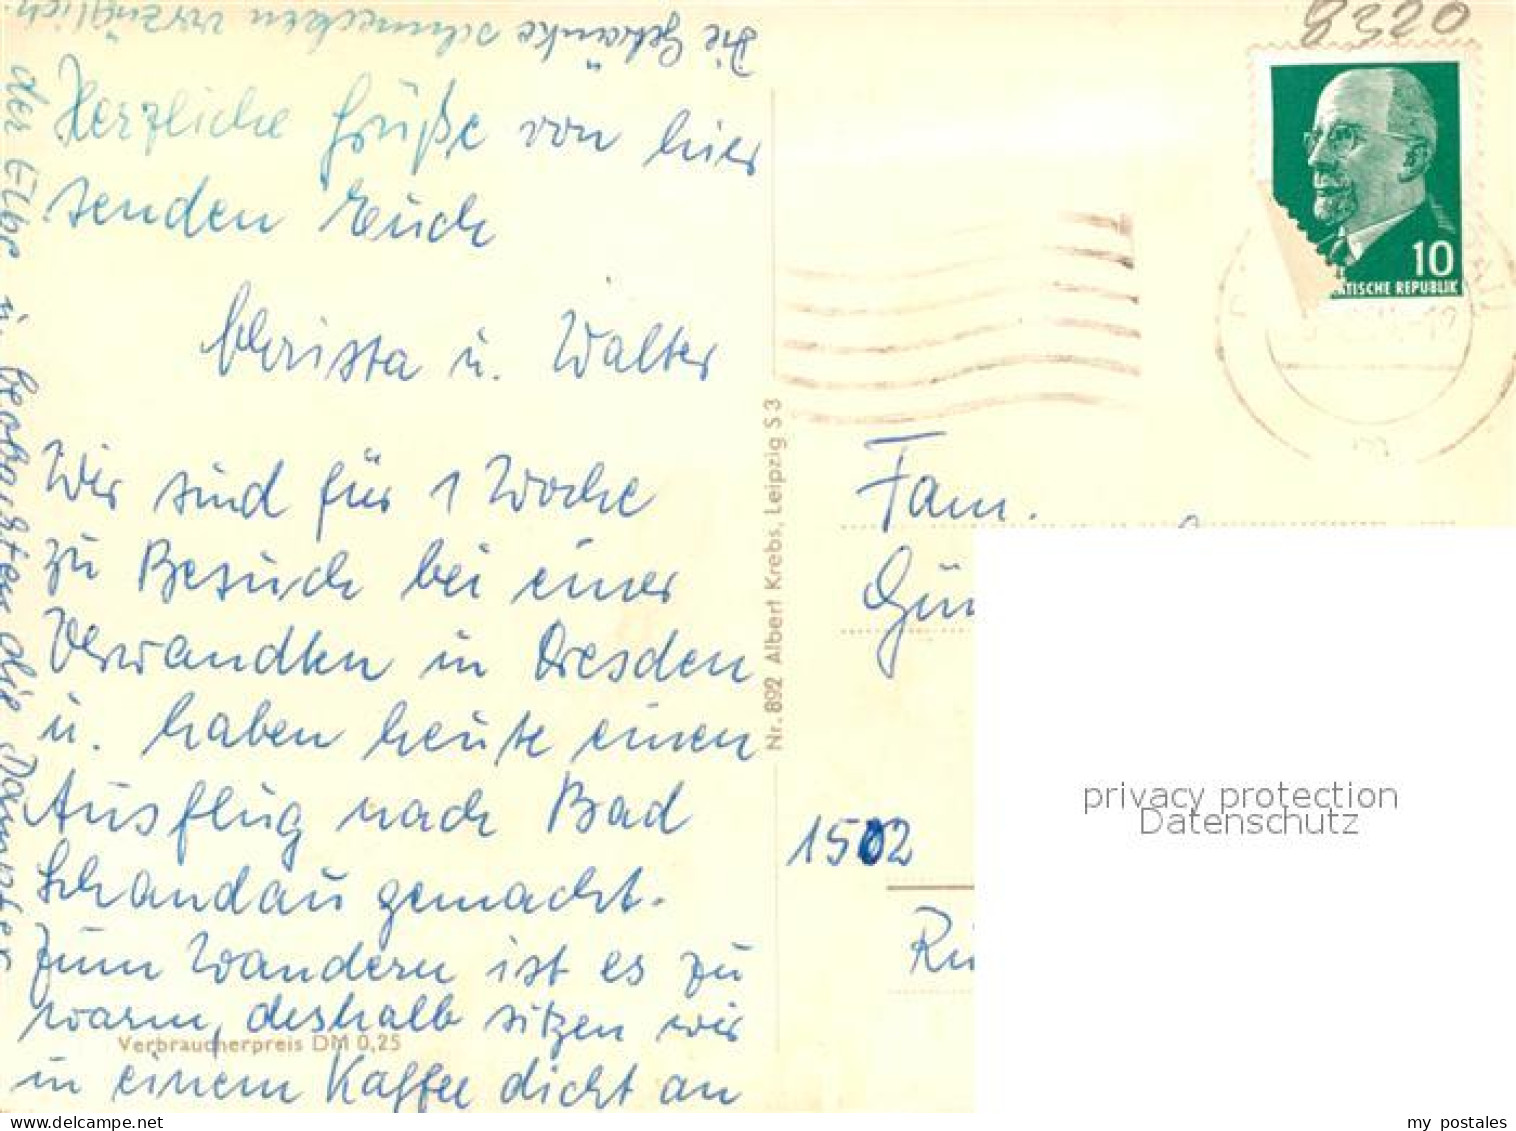 Herzliche Grüße von hier
senden Euch
Christa u. Walter
Wir sind für 1 Woche
zu Besuch bei einer
Verwandten in Dresden
u. haben heute einen
Ausflug nach Bad
Schandau gemacht.
Zum Wandern ist es zu
warm, deshalb sitzen wir
in einem Kaffee dicht an
der Elbe u. beobachten die Dampfer
Die Getränke schmecken vorzüglich
Verbraucherpreis DM 0,25
Nr. 892 Albert Krebs, Leipzig S 3
8320
10
ATISCHE REPUBLIK
Fam.
Gün
1502
Rü
privacy protection
Datenschutz
my postales
www.delcampe.net